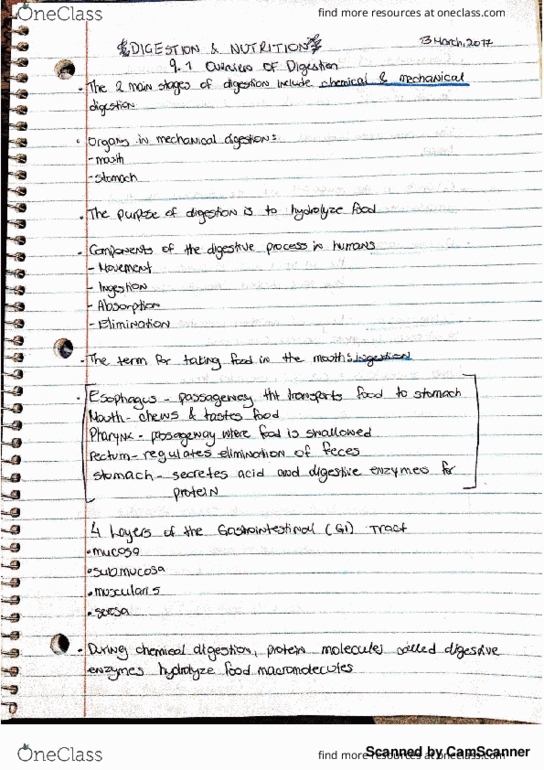 OneClass
find more resources at oneclass.com
DIGESTION & NUTRITION
13 March, 2017
9.1 Overview of Digestion
• The 2 main stages of digestion include chemical & mechanical
digestion
• Organs in mechanical digestion:
- mouth
- stomach
• The purpose of digestion is to hydrolyze food
• Components of the digestive process in humans
- Movement
- Ingestion
- Absorption
- Elimination
• The term for taking food in the mouth: ingestion
• Esophagus - passageway tht transports food to stomach
Mouth - chews & tastes food
Pharynx - passageway where food is swallowed
Rectum - regulates elimination of feces
stomach - secretes acid and digestive enzymes for
protein
4 Layers of the Gastrointestinal (GI) Tract
• mucosa
• submucosa
• muscularis
• serosa
• During chemical digestion, protein molecules called digestive
enzymes hydrolyze food macromolecules
OneClass
find more resources at oneclass.com
Scanned by CamScanner